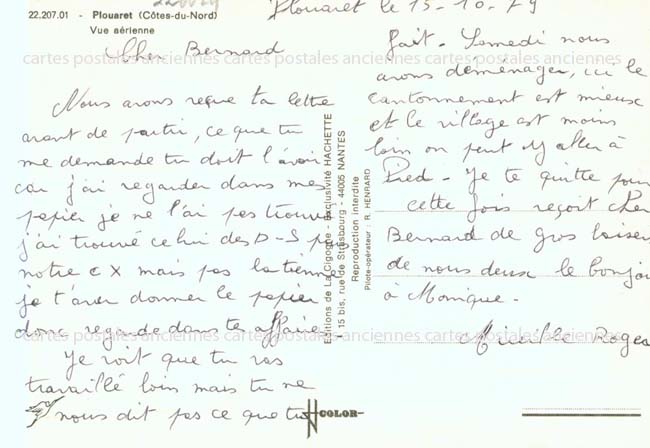 22.207.01 - Plouaret (Côtes-du-Nord)
Vue aérienne
Plouaret le 15-10-79
Cher Bernard
Nous avons reçue ta lettre
avant de partir, ce que tu
me demande tu doit l'avoir
car j'ai regarder dans mes
papier je ne l'ai pas trouver
j'ai trouvé celui des D-S
notre CX mais pas la tienne
je t'aver donner le papier
donc regarde dans te affaire
Je voit que tu vas
travaillé loin mais tu ne
nous dit pas ce que tu
fait - Samedi nous
avons déménager, ici le
cantonnement est mieux
et le village est moins
loin on peut y aller à
Pied - Je te quitte pour
cette fois reçoit cher
Bernard de gros baiser
de nous deux le bonjour
à Monique -
Roger
Editions de La Cigogne - Exclusivité HACHETTE
15 bis, rue de Strasbourg - 44005 NANTES
Reproduction interdite
Pilote-opérateur : R. HENRARD
COLOR
cartes postales anciennes cartes postales anciennes cartes postales anciennes
cartes postales anciennes cartes postales anciennes cartes postales anciennes
cartes postales anciennes cartes postales anciennes cartes postales anciennes